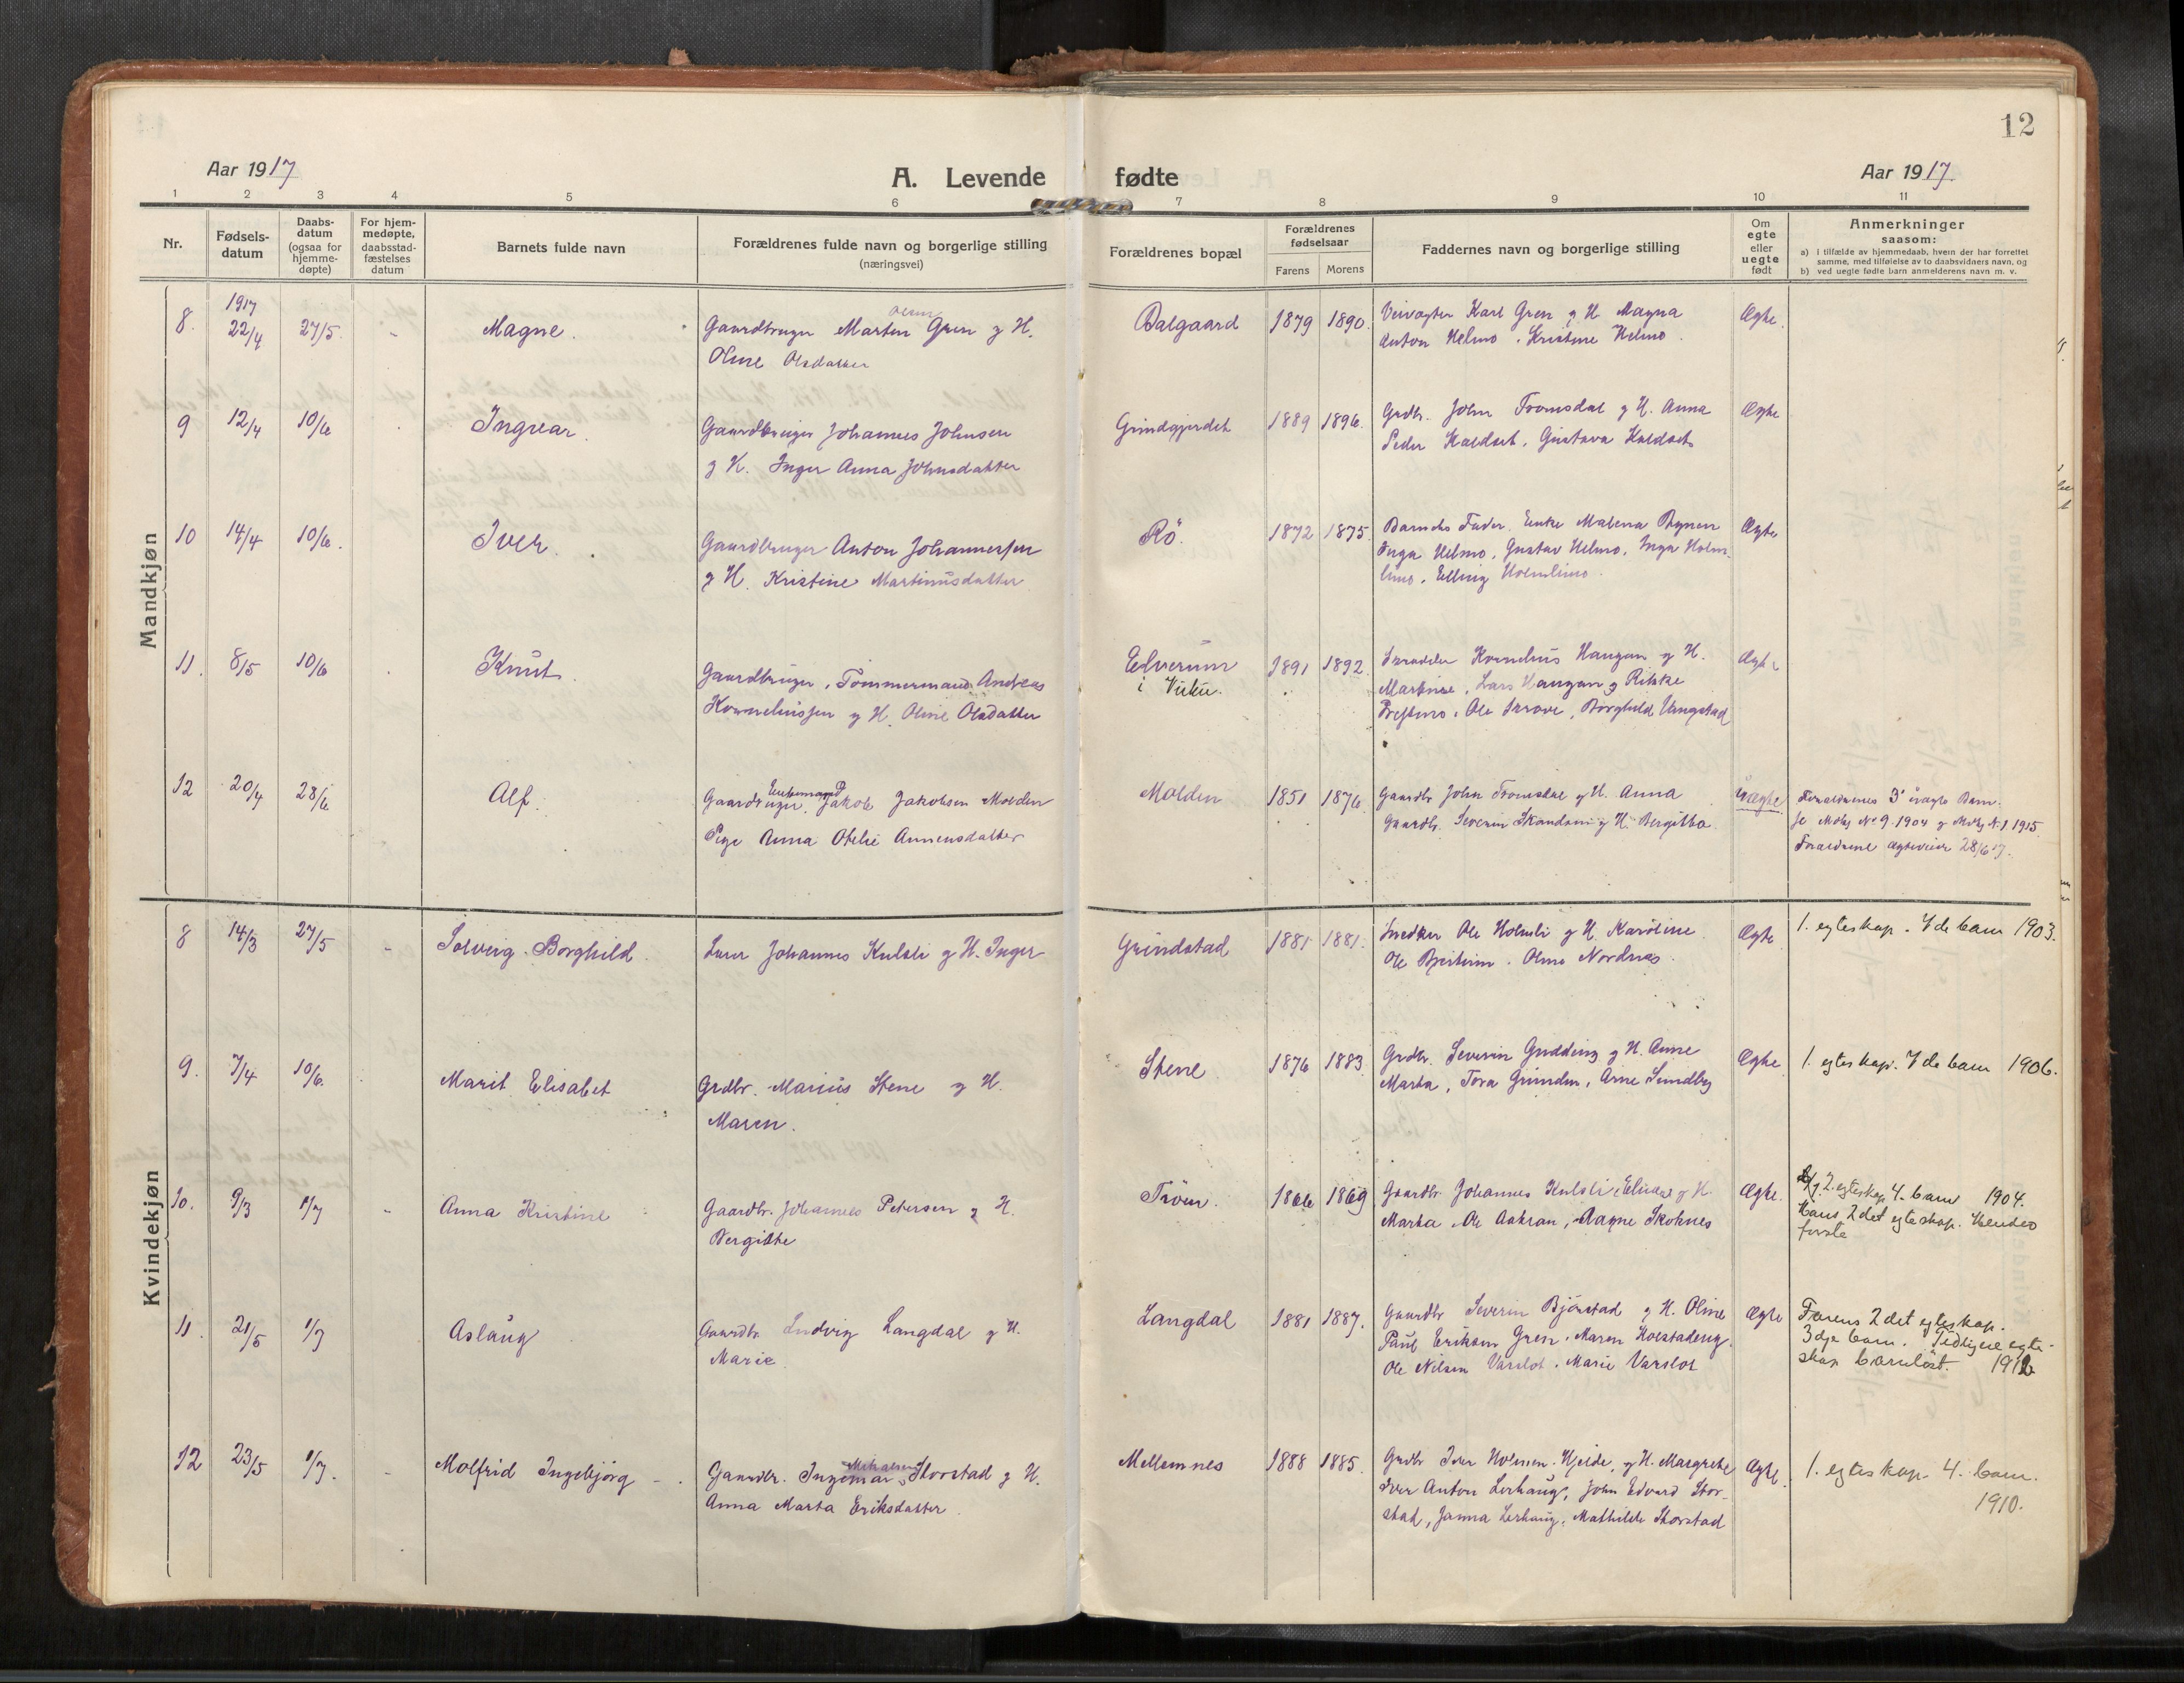 12
Aar 1917
A. Levende fødte
Aar 1917.
1 2 3 4 5 6 7 8 9 10 11
Nr.
Fødsels-
datum
Daabs-
datum
(ogsaa for
hjemme-
døpte)
For hjem-
medøpte,
daabsstad-
fæstelses
datum
Barnets fulde navn
Forældrenes fulde navn og borgerlige stilling
(næringsvei)
Forældrenes bopæl
Forældrenes
fødselsaar
Farens Morens
Faddernes navn og borgerlige stilling
Om
egte
eller
uegte
født
Anmerkninger
saasom:
a) i tilfælde av hjemmedaab, hvem der har forrettet
samme, med tilføielse av to daabsvidners navn, og
b) ved uegte fødte barn anmelderens navn m. v.
Mandkjøn
1917
8. 22/4 27/5. - Magne.
Gaardbruger Marten Olsen Gren g H.
Oline Olsdatter
Dalgaard 1879 1890.
Veivogter Karl Gren g H. Magna
Anton Helmo. Kristine Helmo.
Ægte.
9 12/4 10/6 Ingvar.
Gaardbruger Johannes Johnsen
g H. Inger Anna Johnsdatter
Grindgjerdet 1889 1896.
Grdbr. John Tromsdal g H. Anna
Peder Kaldset, Gustava Kaldset
Ægte
10 14/4 10/6. Iver.
Gaardbruger Anton Johannessen
g H. Kristine Martinusdatter
Rö. 1872 1875.
Barnets Fader. Enke Malena Bynen
Inga Helmo, Gustav Helmo, Inga Holm-
limo, Elling Holmlimo.
Ægte
11. 8/5 10/6 Knut.
Gaardbruger, Tømmermand Andreas
Korneliussen g H. Oline Olsdatter
Elverum
i Vuku.
1891 1892.
Skrædder Kornelius Haugan g H.
Martine, Lars Haugan g Rikke
Presthus, Ole Skrove, Borghild Vangstad
Ægte
12 20/4 28/6 - Alf.
Gaardbruger. Enkemand Jakob Jakobsen Molden
Pige Anna Otelie Annensdatter
Molden 1851 1876
Gaardbr John Tromsdal g H. Anna
Gaardbr. Severin Skandsen g H. Bergitta
Uægte
Forældrenes 3' uægte Barn.
se Mdkj No 9. 1904 g Mdkj N. 1. 1915.
Forældrene ægteviede 28/6 17.
Kvindekjøn
8 14/3 27/5 - Solveig Borghild.
Lærer Johannes Kulsli g H. Inger
Grindstad 1881 1881.
Snedker Ole Holmli g H. Karoline.
Ole Bjertim. Oline Nordnes.
Ægte
1. egteskap. 7de barn 1903.
9. 7/4 10/6. Marit Elisabet
Grdbr. Marius Stene g H.
Maren.
Stene 1876 1883
Grdbr. Severin Gudding g H. Anne
Marta, Tora Grunden, Arne Sundby
Ægte
1. egteskap. 7de barn 1906.
10. 9/3 1/7 - Anna Kristine
Gaardbr. Johannes Petersen g H.
Bergitte
Tröen. 1866 1869
Gaardbr. Johannes Kulsli, g H.
Marta Ole Aakran, Magne Skoknes
Ægte.
2. egteskap 4. barn 1904.
Hans 2det egteskap. Hendes
første
11. 21/5 1/7 Aslaug
Gaardbr. Ludvig Langdal g H.
Marie.
Langdal 1881 1887.
Gaardbr Severin Bjørstad g H. Oline
Paul Eriksen Gren. Maren Holstadeng.
Ole Nilsen Varslot. Marie Varslot
Ægte
Farens 2det egteskap.
3dje barn. Tidligere egte-
skap barnløst. 1912
12 23/5 1/7. - Molfrid Ingebjørg -.
Gaardbr. Ingemar Mikalsen Storstad g H.
Anna Marta Eriksdatter.
Mellemnes 1888 1885.
Grdbr Iver Holmen. Hjelde, g H. Margrete
Iver Anton Lerhaug, John Edvard Stor-
stad, Janna Lerhaug, Mathilde Storstad
Ægte.
1. egteskap 4. barn.
1910.